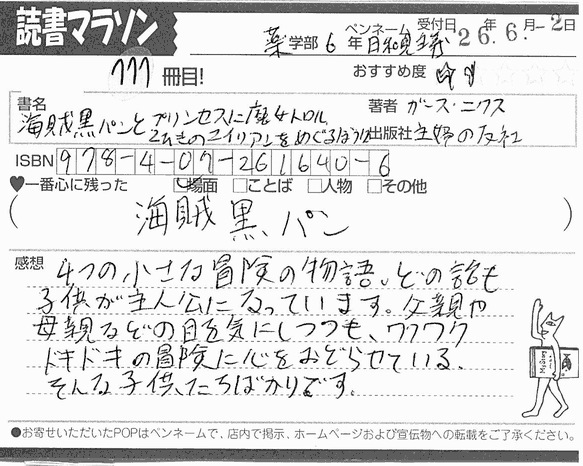 読書マラソン
薬学部 6年 ペンネーム 日和見主義 受付日 26年6月-2日
777冊目!
おすすめ度
書名 海賊黒パンとプリンセスに魔女トロル
2ひきのエイリアンをめぐるぼうけん
著者 ガース・ニクス
出版社 主婦の友社
ISBN 978-4-07-261640-6
♥一番心に残った ☑場面 □ことば □人物 □その他
( 海賊黒パン )
感想 4つの小さな冒険の物語。どの話も
子供が主人公になっています。父親や
母親などの目を気にしつつも、ワクワク
ドキドキの冒険に心をおどらせている、
そんな子供たちばかりです。
●お寄せいただいたPOPはペンネームで、店内で掲示、ホームページおよび宣伝物への転載をご了承ください。